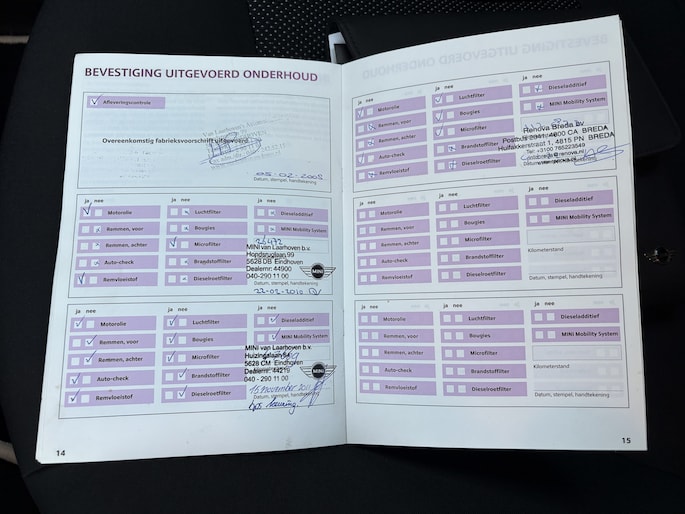 BEVESTIGING UITGEVOERD ONDERHOUD
Afleveringscontrole
Overeenkomstig fabrieksvoorschrift uitgevoerd
05-02-2008
Datum, stempel, handtekening
ja nee
ja nee
ja nee
Motorolie
Luchtfilter
Dieseladditief
Remmen, voor
Bougies
MINI Mobility System
Remmen, achter
Microfilter
26472
Auto-check
Brandstoffilter
Remvloeistof
Dieselroetfilter
MINI van Laarhoven b.v.
Hondsruglaan 99
5628 DB Eindhoven
Dealernr: 44900
040-290 11 00
MINI
Datum, stempel, handtekening
22-02-2010
ja nee
ja nee
ja nee
Motorolie
Luchtfilter
Dieseladditief
Remmen, voor
Bougies
MINI Mobility System
Remmen, achter
Microfilter
Auto-check
Brandstoffilter
Remvloeistof
Dieselroetfilter
MINI van Laarhoven b.v.
Huizingalaan
5628 CM Eindhoven
Dealernr: 44219
040 - 290 11 00
MINI
Datum, stempel, handtekening
15 november 2011
14
ja nee
ja nee
ja nee
Motorolie
Luchtfilter
Dieseladditief
Remmen, voor
Bougies
MINI Mobility System
Remmen, achter
Microfilter
Auto-check
Brandstoffilter
Remvloeistof
Dieselroetfilter
Renova Breda bv
Postbus 2341, 4800 CA BREDA
Huifakkerstraat 1, 4815 PN BREDA
ja nee
ja nee
ja nee
Motorolie
Luchtfilter
Dieseladditief
Remmen, voor
Bougies
MINI Mobility System
Remmen, achter
Microfilter
Kilometerstand
Auto-check
Brandstoffilter
Remvloeistof
Dieselroetfilter
Datum, stempel, handtekening
ja nee
ja nee
ja nee
Motorolie
Luchtfilter
Dieseladditief
Remmen, voor
Bougies
MINI Mobility System
Remmen, achter
Microfilter
Kilometerstand
Auto-check
Brandstoffilter
Remvloeistof
Dieselroetfilter
Datum, stempel, handtekening
15